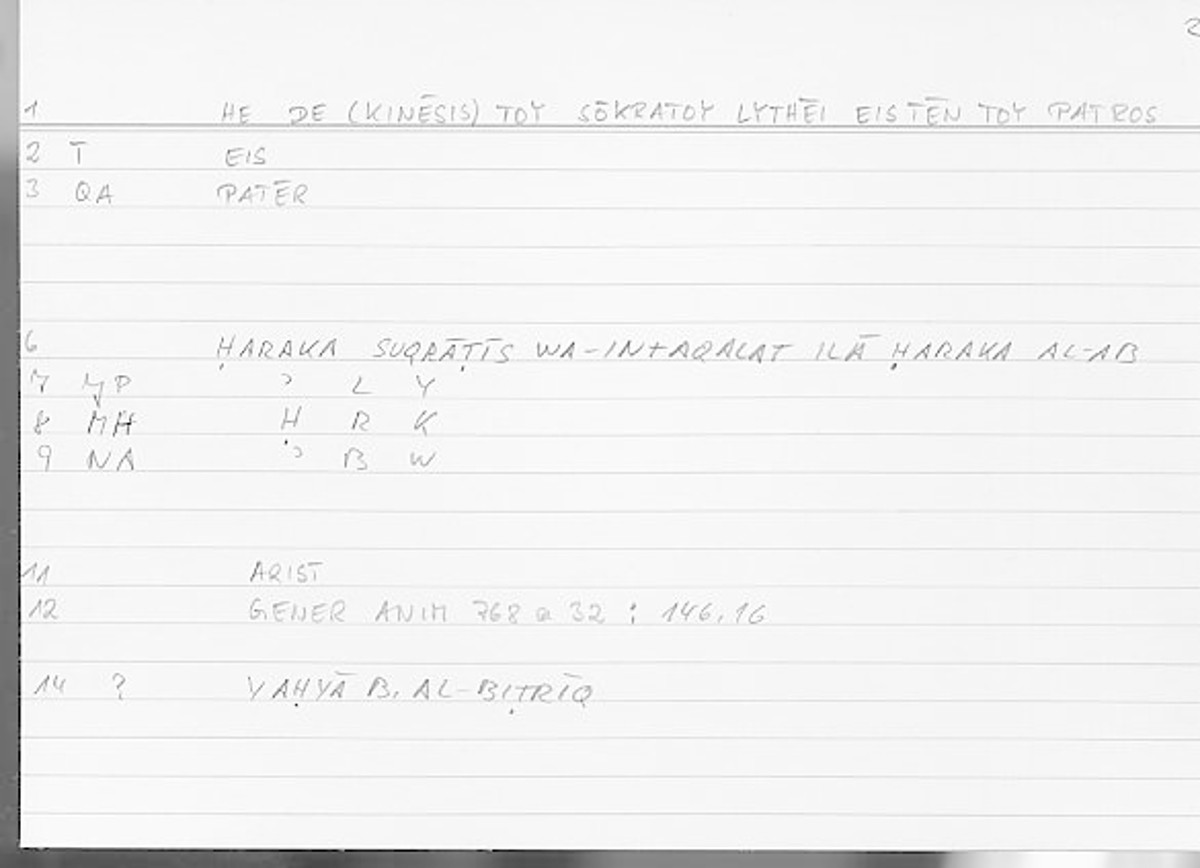 2
1 HE DE (KINĒSIS) TOY SŌKRATOY LYTHĒI EIS TĒN TOY PATROS
2 T EIS
3 QA PATĒR
6 ḤARAKA SUQRĀṬĪS WA-INTAQALAT ILĀ ḤARAKA AL-AB
7 ʾ L Y
8 MH Ḥ R K
9 NA ʾ B W
11 ARIST
12 GENER ANIM 768 a 32 : 146,16
14 ? YAḤYĀ B. AL-BIṬRĪQ